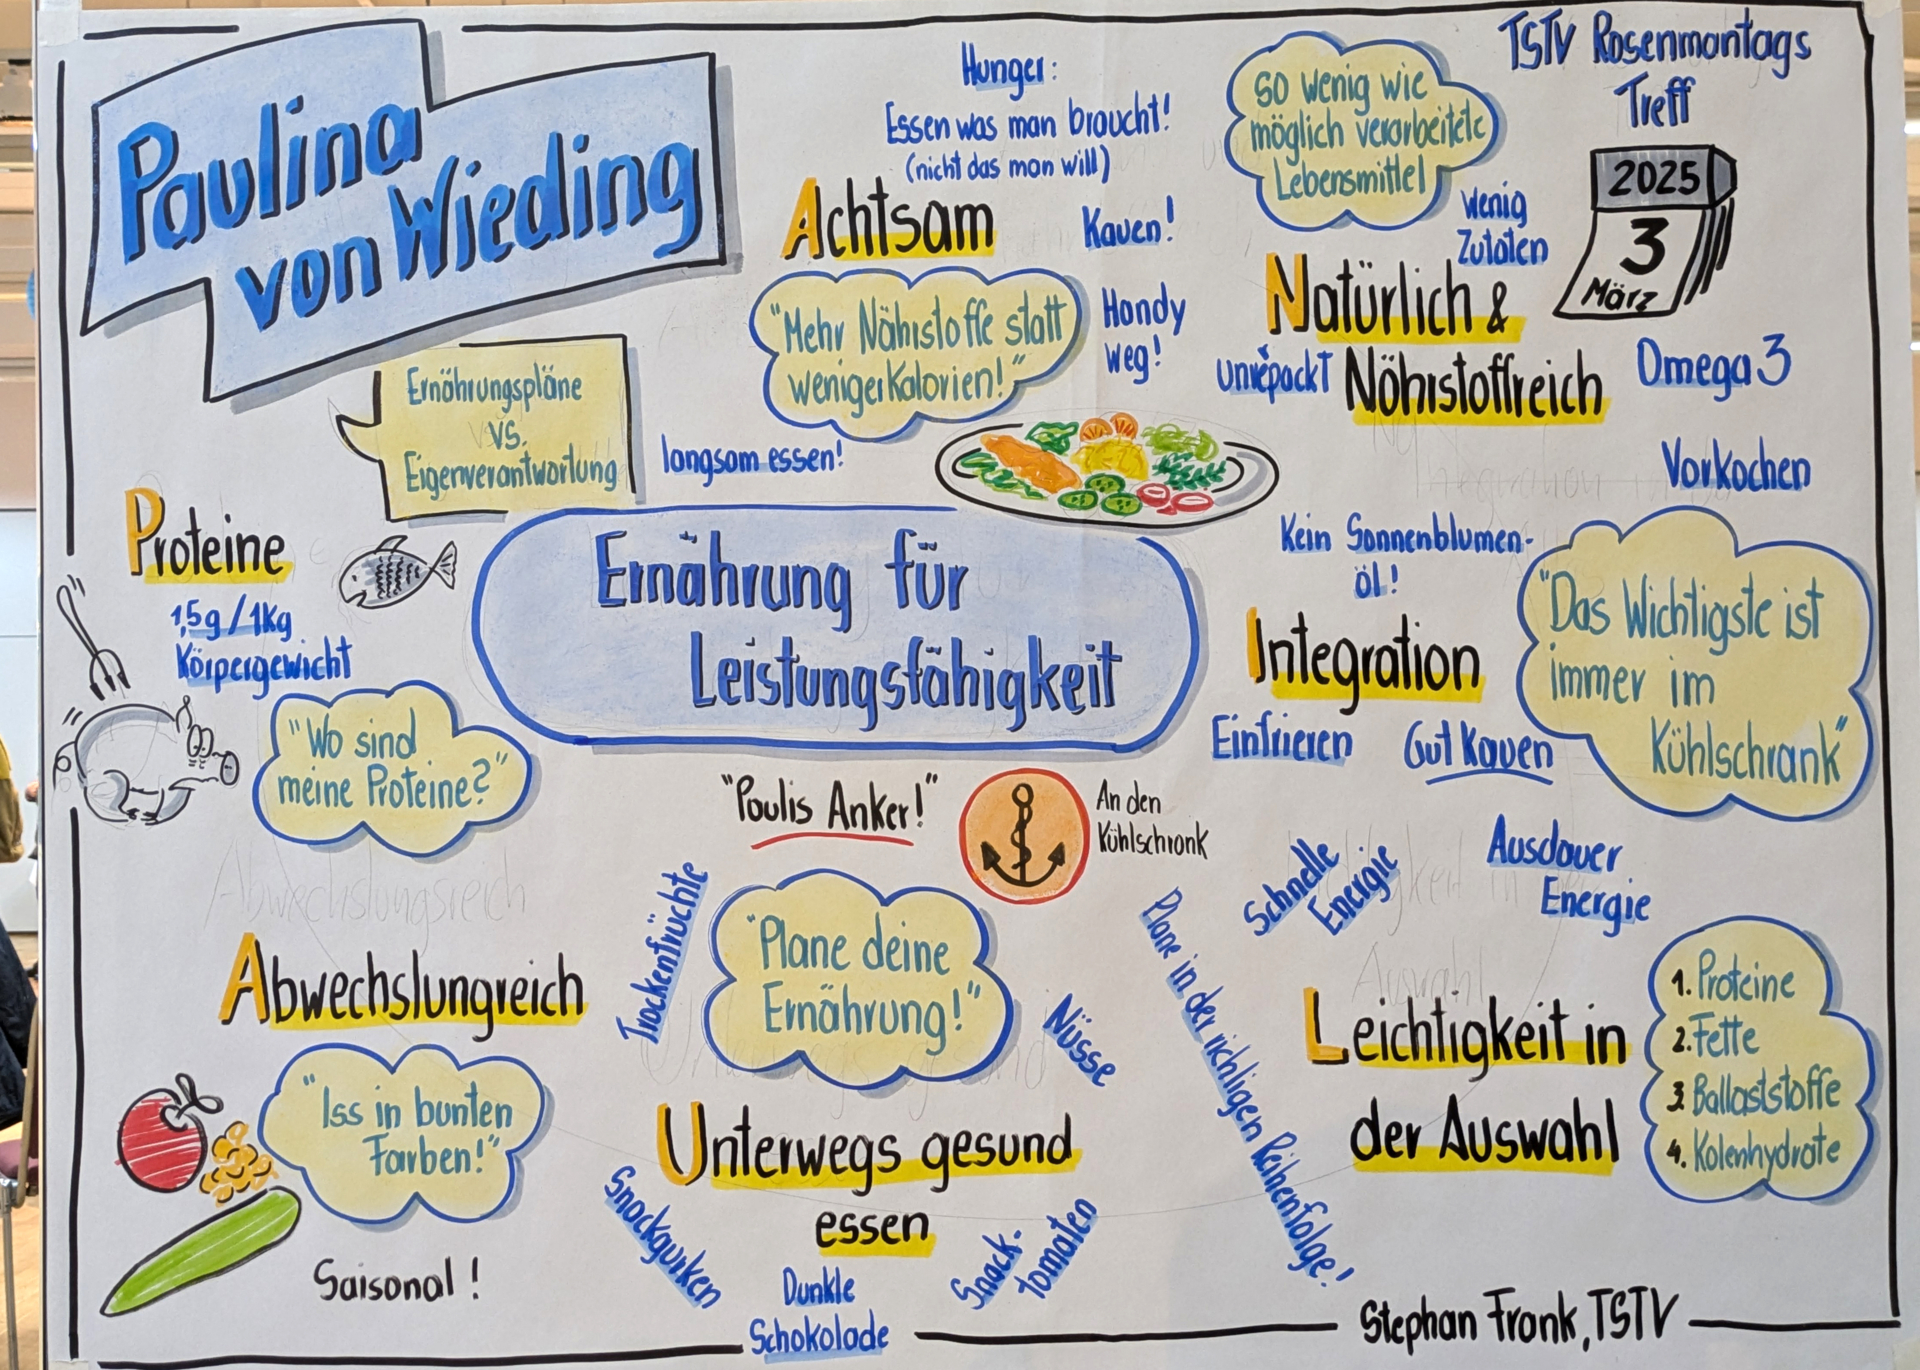 Paulina
von Wieding
Ernährungspläne
vs.
Eigenverantwortung
Hunger:
Essen was man braucht!
(nicht das man will)
Achtsam
Kauen!
"Mehr Nährstoffe statt
weniger Kalorien!"
Handy
weg!
langsam essen!
so wenig wie
möglich verarbeitete
Lebensmittel
TSTV Rosenmontags
Treff
2025
3
März
wenig
Zutaten
Natürlich &
Nährstoffreich
unverpackt
Omega 3
Vorkochen
Proteine
1,5g/1Kg
Körpergewicht
"Wo sind
meine Proteine?"
Ernährung für
Leistungsfähigkeit
Kein Sonnenblumen-
öl!
Integration
Einfrieren
Gut Kauen
"Das Wichtigste ist
immer im
Kühlschrank"
"Paulis Anker!"
An den
Kühlschrank
Abwechslungsreich
Abwechslungreich
"Iss in bunten
Farben!"
Saisonal!
Trockenfrüchte
"Plane deine
Ernährung!"
Nüsse
Unterwegs gesund
essen
Snackgurken
Dunkle
Schokolade
Snack-
tomaten
Schnelle
Energie
Ausdauer
Energie
Plane in der richtigen Reihenfolge!
Leichtigkeit in
der Auswahl
1. Proteine
2. Fette
3. Ballaststoffe
4. Kolenhydrate
Stephan Frank, TSTV